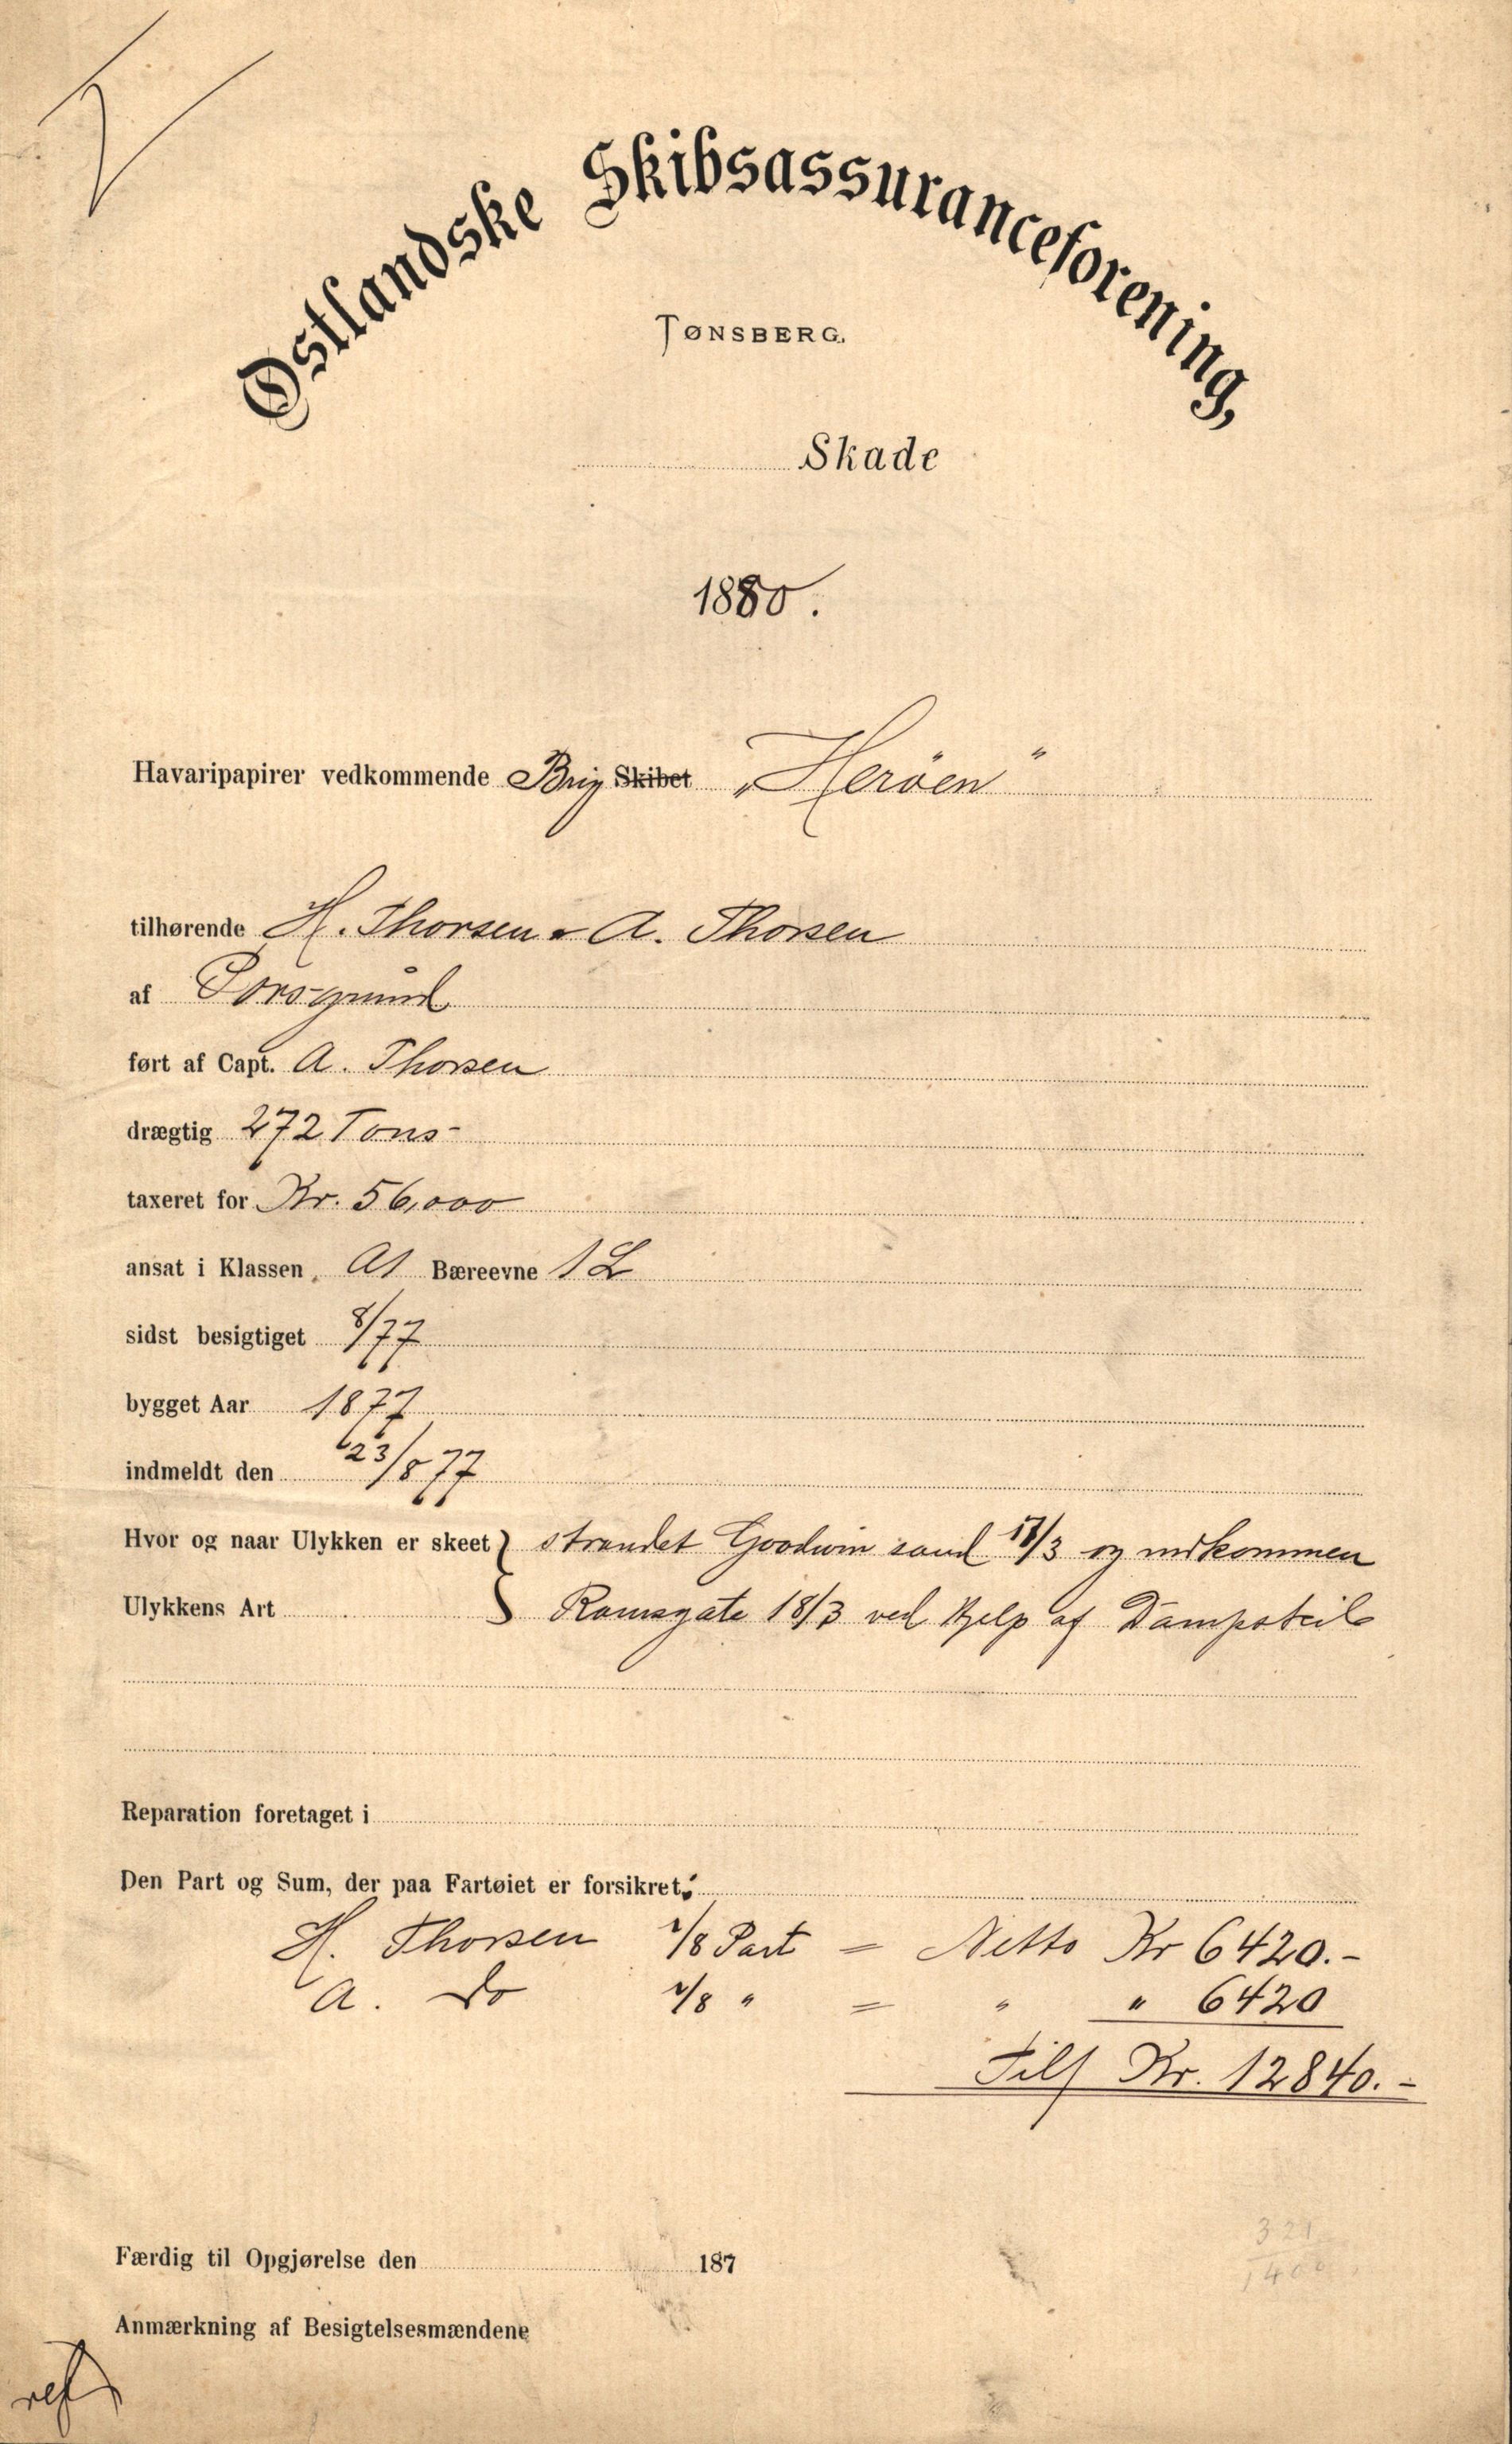 Østlandske Skibsassuranceforening,
TØNSBERG.
Skade
1880.
Havaripapirer vedkommende Brig Skibet „Herøen"
tilhørende H. Thorsen & A. Thorsen
af Porsgrund
ført af Capt. A. Thorsen
drægtig 272 Tons
taxeret for Kr. 56,000
ansat i Klassen A1 Bæreevne 1 L
sidst besigtiget 8/77
bygget Aar 1877
indmeldt den 23/8 77
Hvor og naar Ulykken er skeet } strandet Goodwin sand /3 og indkommen
Ulykkens Art } Ramsgate 18/3 ved Hjelp af
Reparation foretaget i
Den Part og Sum, der paa Fartøiet er forsikret:
H. Thorsen /8 Part = Netto Kr 6420.-
A. Do /8 " = " " 6420
Tils Kr. 12840.-
Færdig til Opgjørelse den 187
Anmærkning af Besigtelsesmændene
321
1400